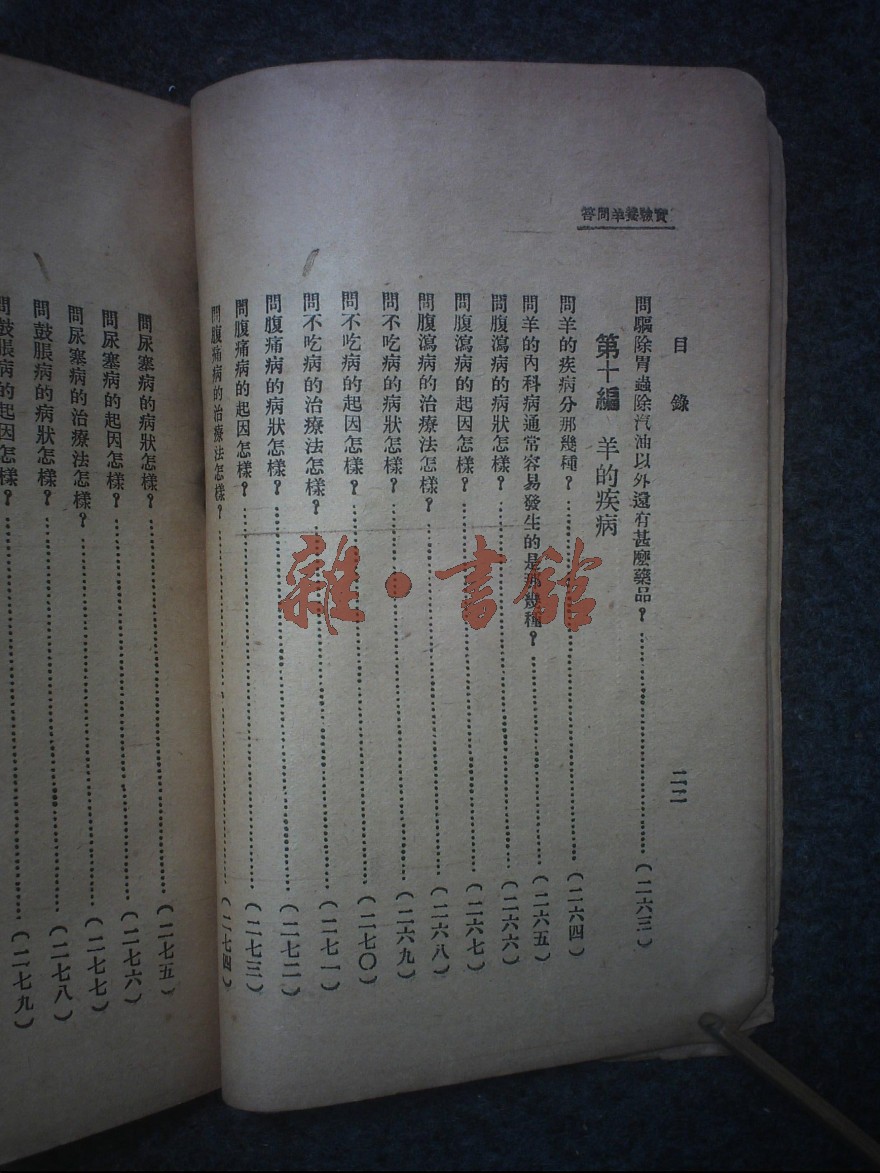 實驗養羊問答
目錄
二二
問驅除胃蟲除汽油以外還有甚麼藥品？⋯⋯(二六三)
第十編 羊的疾病
問羊的疾病分那幾種？⋯⋯(二六四)
問羊的內科病通常容易發生的是那幾種？⋯⋯(二六五)
問腹瀉病的病狀怎樣？⋯⋯(二六六)
問腹瀉病的起因怎樣？⋯⋯(二六七)
問腹瀉病的治療法怎樣？⋯⋯(二六八)
問不吃病的病狀怎樣？⋯⋯(二六九)
問不吃病的起因怎樣？⋯⋯(二七〇)
問不吃病的治療法怎樣？⋯⋯(二七一)
問腹痛病的病狀怎樣？⋯⋯(二七二)
問腹痛病的起因怎樣？⋯⋯(二七三)
問腹痛病的治療法怎樣？⋯⋯(二七四)
問尿塞病的病狀怎樣？⋯⋯(二七五)
問尿塞病的起因怎樣？⋯⋯(二七六)
問尿塞病的治療法怎樣？⋯⋯(二七七)
問鼓脹病的病狀怎樣？⋯⋯(二七八)
問鼓脹病的起因怎樣？⋯⋯(二七九)
雜·書館